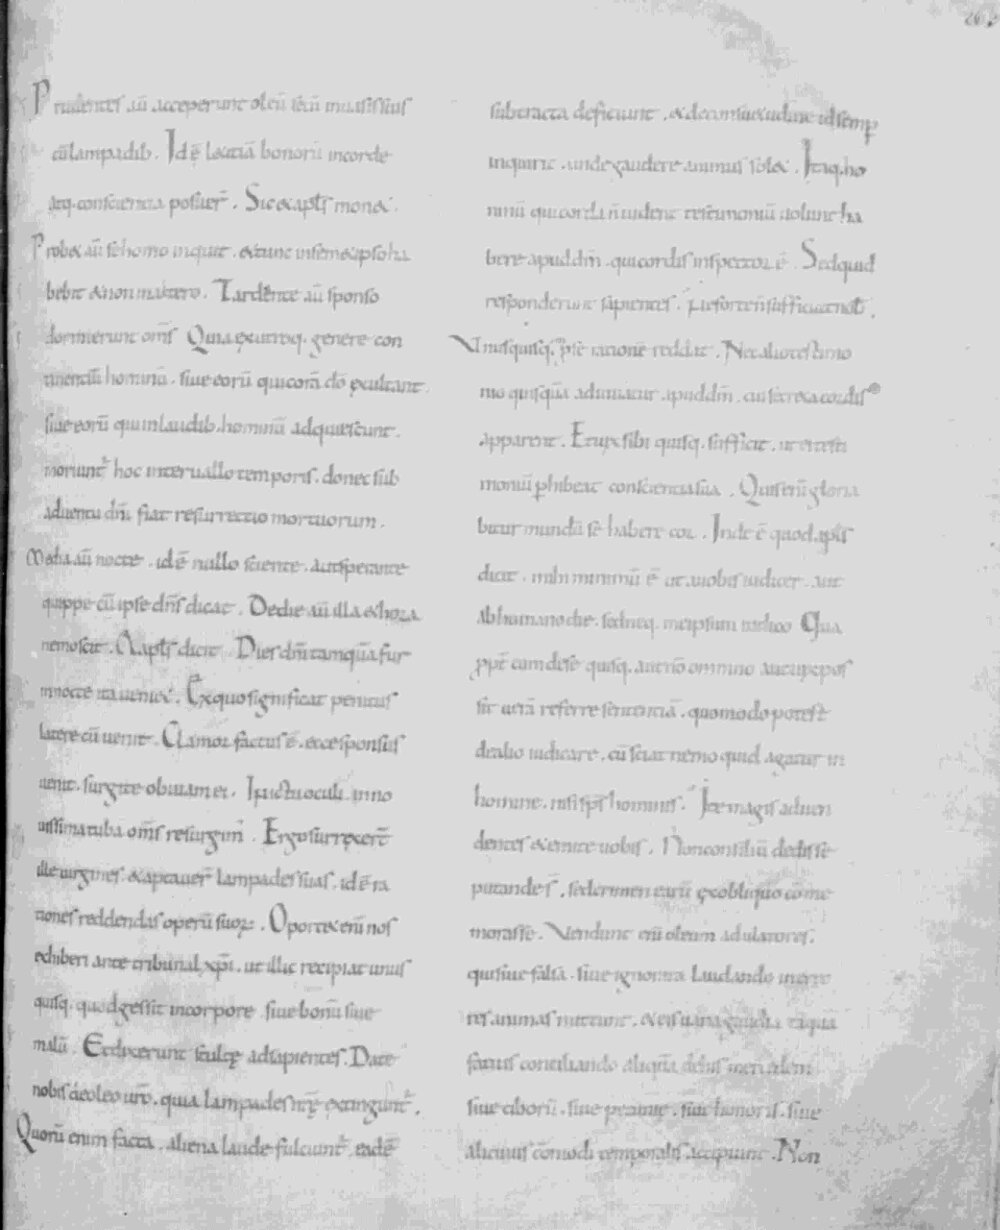 Prudentes aū acceperunt oleū secū inuasis suis
cū lampadib. Id ē laetitiā bonorū in corde
atq. conscientia posuer̄. Sic & apłs monet.
Probet aū se homo inquit. & tunc insem&ipso ha
bebit & non in altero. Tardante aū sponso
dormierunt om̄s Quia ex utroq. genere con
tinentiū hominū. siue eorū qui corā dō exultant.
siue eorū qui inlaudib. hominū adquiescunt.
moriunt̄ hoc interuallo temporis. donec sub
aduentu dn̄i fiat resurrectio mortuorum.
Media aū nocte. id ē nullo sciente. aut sperante
quippe cū ipse dn̄s dicat. De die aū illa & hora
nemo scit. & apłs dicit. Dies dn̄i tamquā fur
in nocte ita ueniet. Ex quo significat penitus
latere cū uenit. Clamor factus ē. ecce sponsus
uenit. surgite obuiam ei. In ictu oculi. in no
uissima tuba om̄s resurgim̄. Ergo surrexer̄t
ille uirgines. & aptauer̄ lampades suas. id ē ra
tiones reddendas operū suoꝝ. Oportet enī nos
exhiberi ante tribunal xp̄i. ut illic recipiat unus
quisq. quod gessit in corpore siue bonū siue
malū. Et dixerunt stultę ad sapientes. Date
nobis de oleo ur̄o. quia lampades nr̄ę extingunt̄.
Quorū enim facta. aliena laude fulciunt̄. eadē
subtracta deficiunt. & de consuetudine id semp̄
inquirit. unde gaudere animus sol&. Itaq. ho
minū qui corda n̄ uident testimoniū uolunt ha
bere apud dm̄. qui cordis inspector ē. Sed quid
responderunt sapientes. Ne forte n̄ sufficiat nob.
Unusquisq. p̄ se rationē reddet. Nec alio testimo
nio quisquā adiuuatur apud dm̄. cui secreta cordis
apparent. Et uix sibi quisq. sufficit. ut ei testi
moniū p̄hibeat conscientia sua. Quis enī gloria
bitur mundū se habere cor. Inde ē quod apłs
dicit. mihi minimū ē ut auobis iudicer. aut
ab humano die. sed neq. me ipsum iudico Qua
ppt̄ cum de se quisq. aut n̄ omnino aut uix pos
sit uerā referre sententiā. quomodo potest
de alio iudicare. cū sciat nemo quid agatur in
homine. nisi sp̄s hominis. Ite magis ad uen
dentes & emite uobis. Non consiliū dedisse
putande s̄. sed crimen earū ex obliquo cōme
morasse. Uendunt enī oleum adulatores.
qui siue falsa. siue ignorata laudando in erro
res animas mittunt. & eis uana gaudia tāquā
fatuis conciliando aliquā de his mercedem
siue ciborū. siue pecunię. siue honoris. siue
alicuius cōmodi temporalis accipiunt. Non